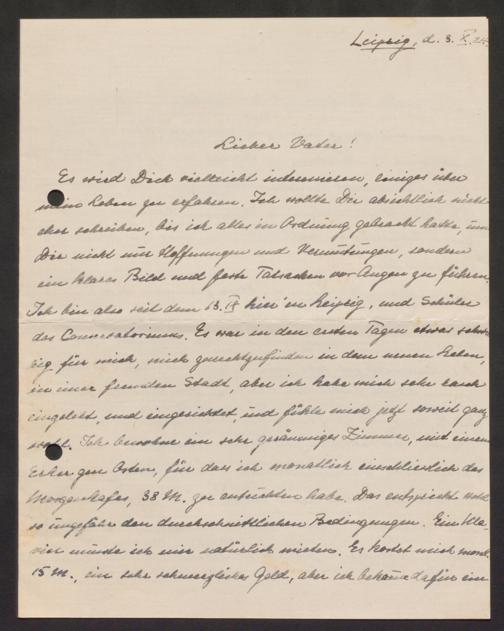 Leipzig, d. 8. X. 24.
Lieber Vater!
Es wird Dich vielleicht interessieren, einiges über
mein Leben zu erfahren. Ich wollte Dir absichtlich nicht
eher schreiben, bis ich alles in Ordnung gebracht hatte, um
Dir nicht nur Hoffnungen und Vermutungen, sondern
ein klares Bild und feste Tatsachen vor Augen zu führen.
Ich bin also seit dem 13. IX hier in Leipzig, und Schüler
des Conservatoriums. Es war in den ersten Tagen etwas schwie-
rig für mich, mich zurechtzufinden in dem neuen Leben,
in einer fremden Stadt, aber ich habe mich sehr rasch
eingelebt, und eingerichtet, und fühle mich jetzt soweit ganz
wohl. Ich bewohne ein sehr geräumiges Zimmer, mit einem
Erker gen Osten, für das ich monatlich einschliesslich des
Morgenkafes, 38 M. zu entrichten habe. Das entspricht wohl
so ungefähr den durchschnittlichen Bedingungen. Ein Kla-
vier musste ich mir natürlich mieten. Es kostet mich monatl.
15 M., ein sehr schmerzliches Geld, aber ich bekam dafür ein